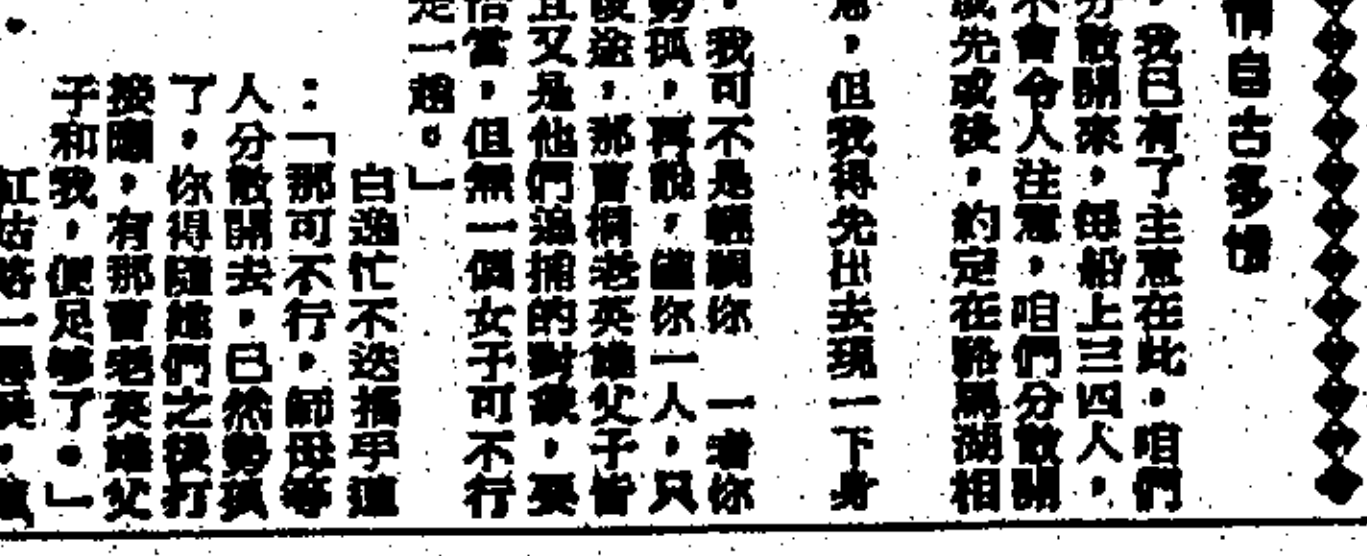 情自古多情
，我已有了主意在此，咱們
分散開來，每船上三四人，
不會令人注意，咱們分散開
或先或後，約定在駱馬湖相
息，但我得先出去現一下身
，我可不是輕覷你　一者你
勢孤，再說，僅你一人，只
後途，那曹桐老英雄父子皆
且又是他們追捕的對象，要
恰當，但無一個女子可不行
走一趟。」
白逸忙不迭搖手道
：「那可不行，師母等
人分散開去，已然勢孤
了，你得隨她們之後打
接應，有那曹老英雄父
子和我，便足够了。」
紅姑將一